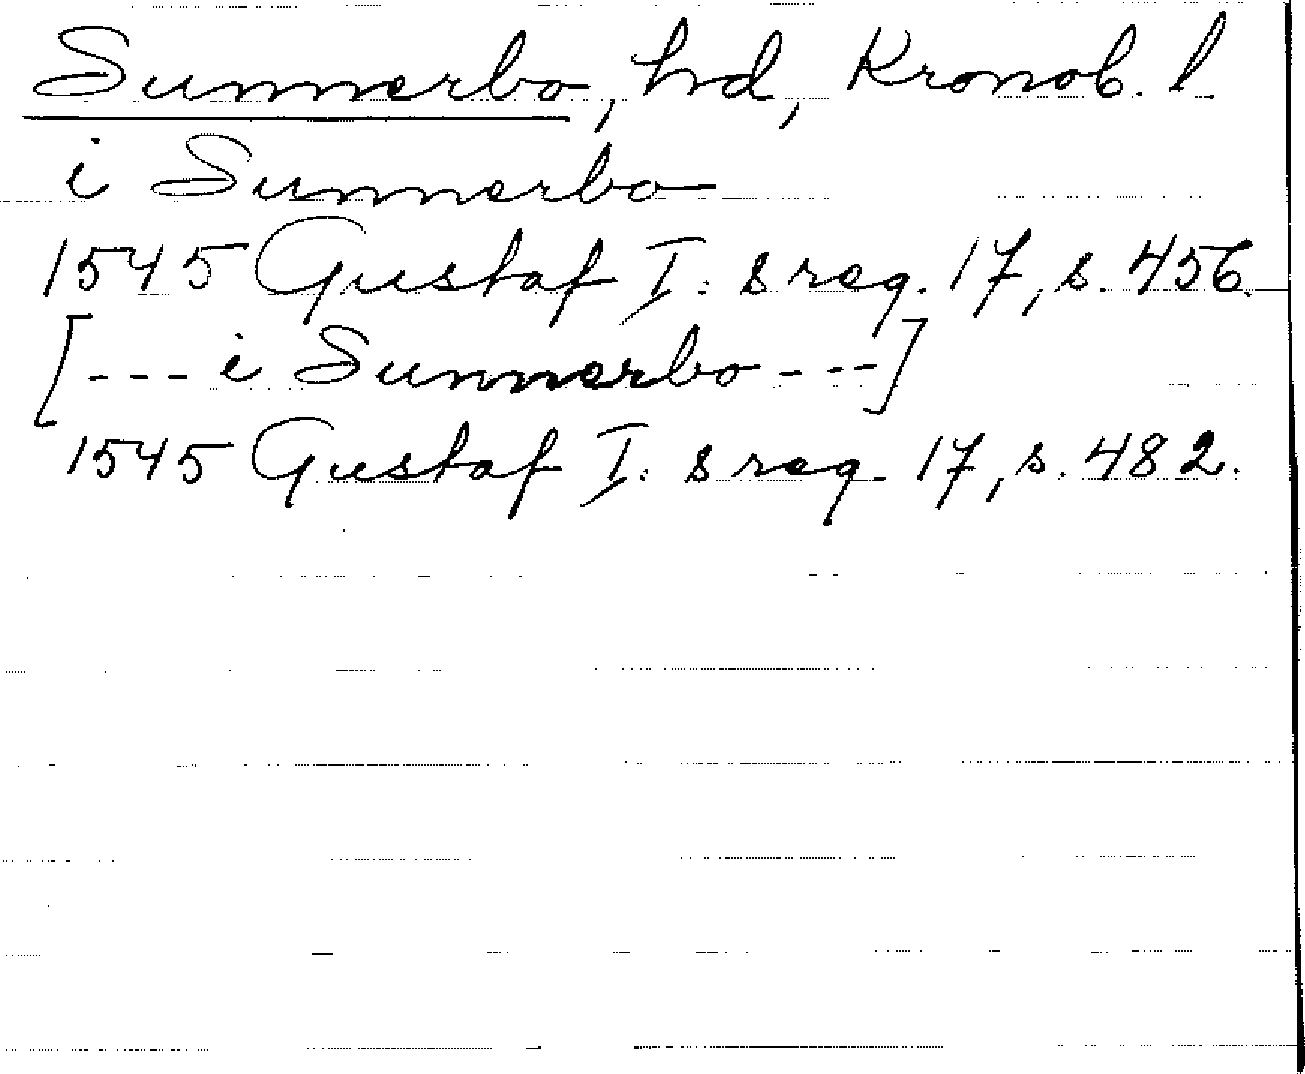 Sunnerbo, hd, Kronob. l.
i Sunnerbo
1545 Gustaf I: s reg. 17, s. 456.
[--- i Sunnerbo ---]
1545 Gustaf I: s reg. 17, s. 482.